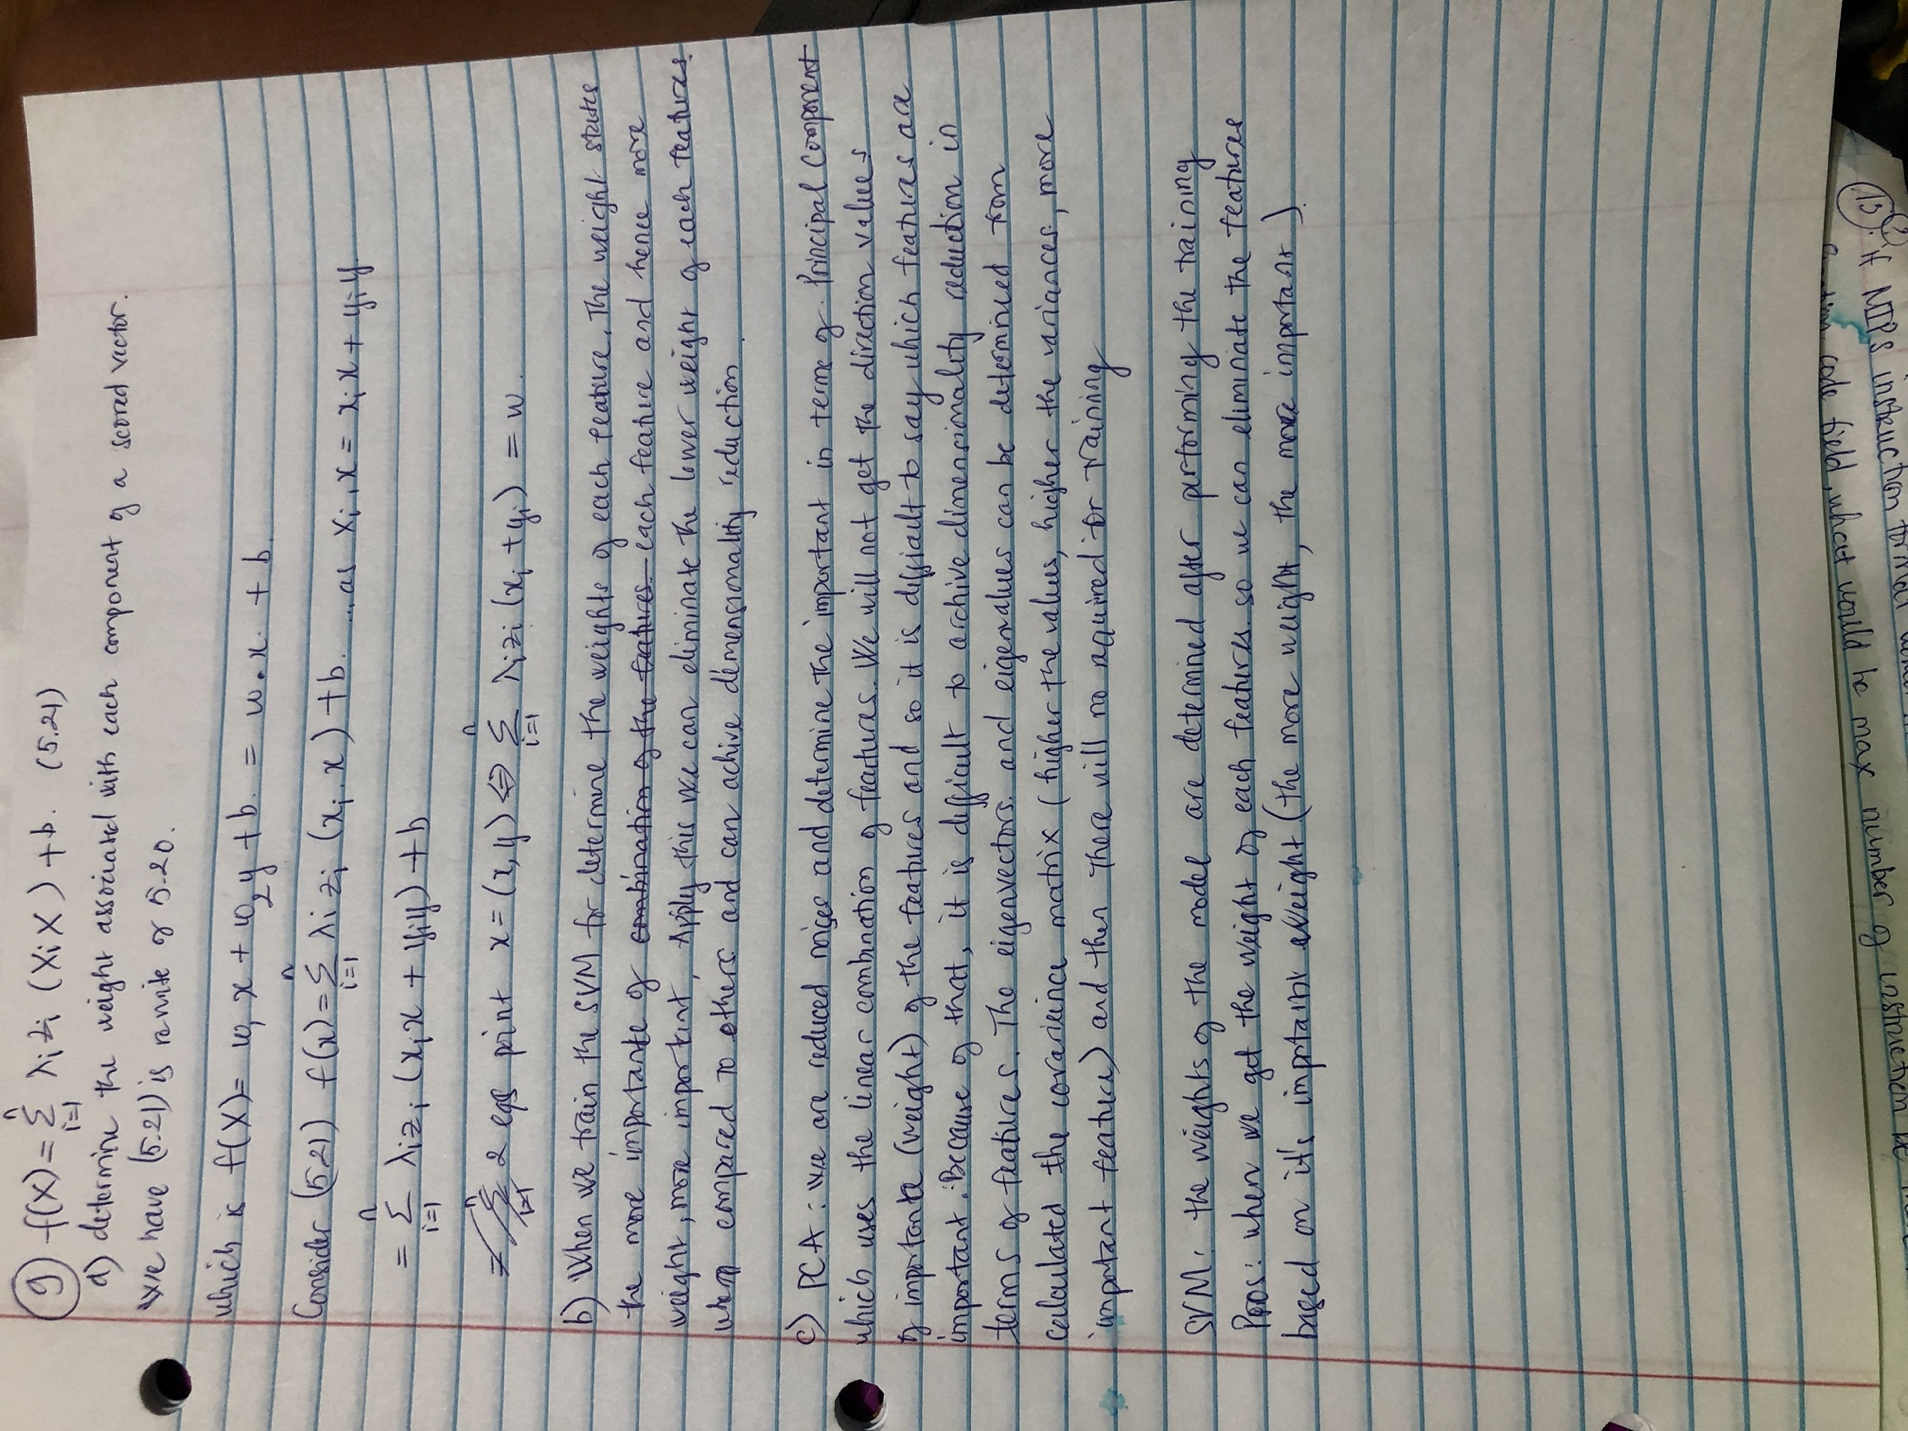 9) f(X) = Σ λi zi (Xi X) + b. (5.21)
n
i=1
a) determine the weight associated with each component of a scored vector.
We have (5.21) is rewrite of 5.20.
which is f(X) = w1 x + w2 y + b. = w . x . + b.
Consider (5.21) f(x) = Σ λi zi (xi . x) + b. ... as Xi, X = xi x + yi y
n
i=1
= Σ λi zi (xi x + yi y) + b
n
i=1
2 eqs point x = (x, y) ⇔ Σ λi zi (xi + yi) = w.
n
i=1
b) When we train the SVM for determine the weights of each feature. The weight state
the more importante of combination of the features each feature and hence more
weight, more important, Apply this we can eliminate the lower weight of each features
when compared to others and can achive dimensionality reduction
c) PCA: we are reduced and determine the important in terms of. Principal Component
which uses the linear combination of features. We will not get the direction values
of importante (weight) of the features and so it is difficult to say which features are
important. Because of that, it is difficult to archive dimensionality reduction in
terms of features. The eigenvectors. and eigenvalues can be determined from
calculated the covarience matrix (higher the values, higher the variances, more
important feature) and then there will no required for training
SVM: the weights of the model are determined after performing the training
Pros: when we get the weight of each features. so we can eliminate the features
based on it's important weight (the more weight, the more important).
15)
if MIPS instruction format
code field, what would be max number of instruction be